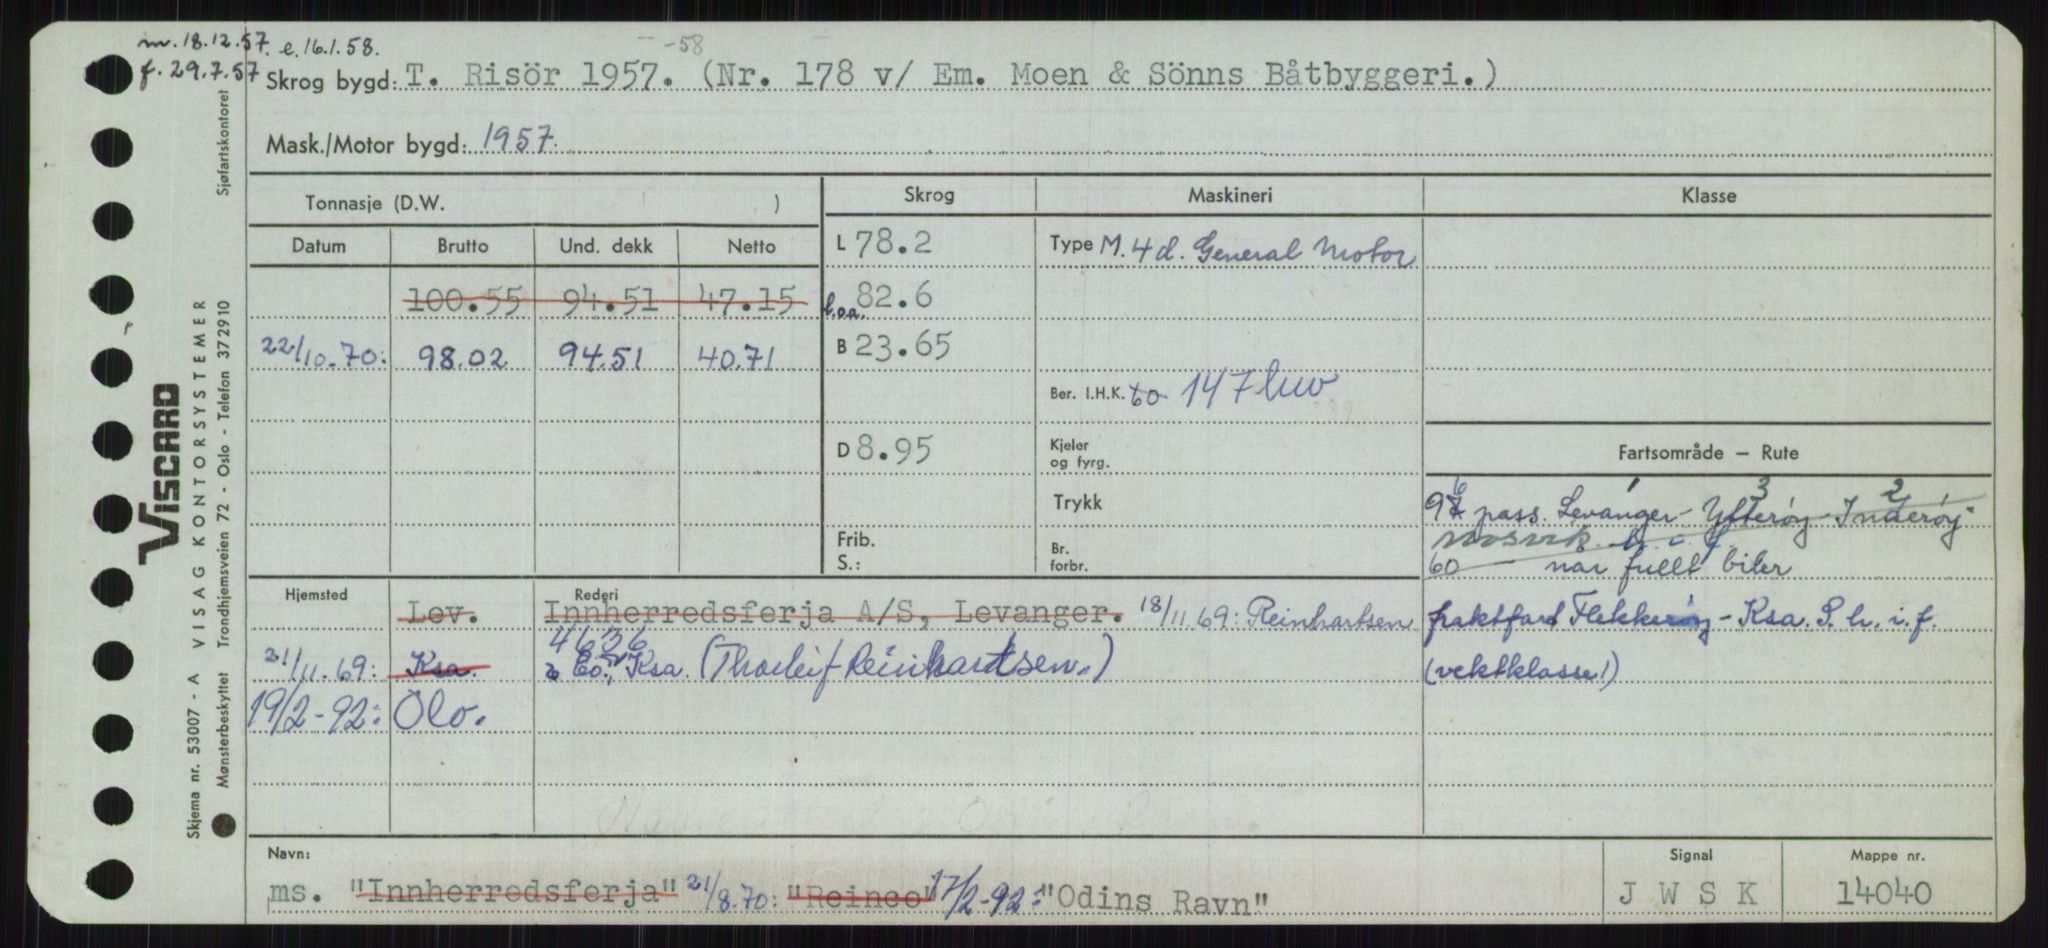 m. 18.12.57. e. 16.1.58.
f. 29.7.57
-58
Skrog bygd: T. Risör 1957. (Nr. 178 v/ Em. Moen & Sönns Båtbyggeri.)
Mask./Motor bygd: 1957.
Tonnasje (D.W. )
Skrog Maskineri Klasse
Datum Brutto Und. dekk Netto
L 78.2 Type M. 4 d. General Motor
100.55 94.51 47.15 l.o.a. 82.6
22/10.70: 98.02 94.51 40.71 B 23.65
Ber. I.H.K. 60 147 kw
D 8.95 Kjeler og fyrg.
Fartsområde — Rute
Trykk
Frib.
S.:
Br. forbr.
1 3 2
6
97 pass. Levanger - Ytterøy - Inderøy -
Mosvik h. i. f.
60 når fullt biler
Hjemsted Rederi
Lev. Innherredsferja A/S, Levanger. 18/11 69: Reinhartsen
fraktfart Flekkerøy - Ksa. S. h. i. f.
4636
21/11.69: Ksa. & Co., Ksa. (Thorleif Reinhartsen.)
(vektklasse!)
19/2-92: Olo.
Navn: Signal Mappe nr.
ms. "Innherredsferja" 21/8.70: "Reinco" 17/2-92: "Odins Ravn" J W S K 14040
VISCARD
VISAG KONTORSYSTEMER
Skjema nr. 53007 - A
Mønsterbeskyttet Trondhjemsveien 72 - Oslo - Telefon 372910
Sjøfartskontoret